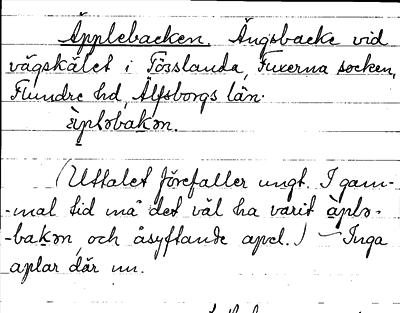 Äpplebacken. Ängsbacke vid
vägskälet i Fösslanda, Fuxerna socken,
Flundre hd, Älfsborgs län.
äpləbakən.
(Uttalet förefaller ungt. I gam-
-mal tid må det väl ha varit àplə-
-bakən, och åsyftande apel.) — Inga
aplar där nu.